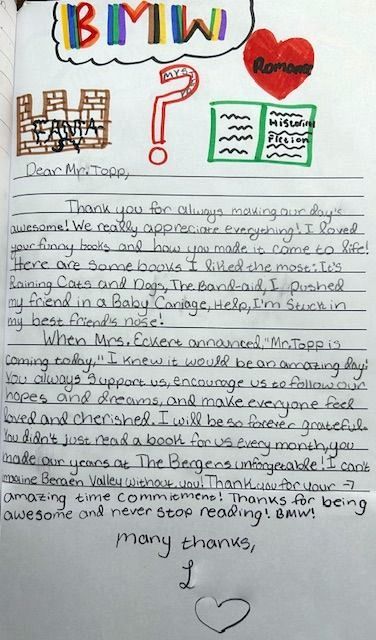 BMW
Romance
MYSTERY
FANTASY
Historical
Fiction
Dear Mr. Topp,
Thank you for always making our day's
awesome! We really appreciate everything! I loved
your funny books and how you made it come to life!
Here are some books I liked the most: It's
Raining Cats and Dogs, The Band-aid, I pushed
my friend in a Baby Cariage, Help, I'm Stuck in
my best friend's nose!
When Mrs. Eckert announced, "Mr. Topp is
coming today," I knew it would be an amazing day!
You always support us, encourage us to follow our
hopes and dreams, and make everyone feel
loved and cherished. I will be so forever grateful.
You didn't just read a book for us every month, you
made our years at The Bergens unforgetable! I can't
imaine Bergen Valley without you! Thank you for your →
amazing time commitment! Thanks for being
awesome and never stop reading! BMW!
many thanks,
L